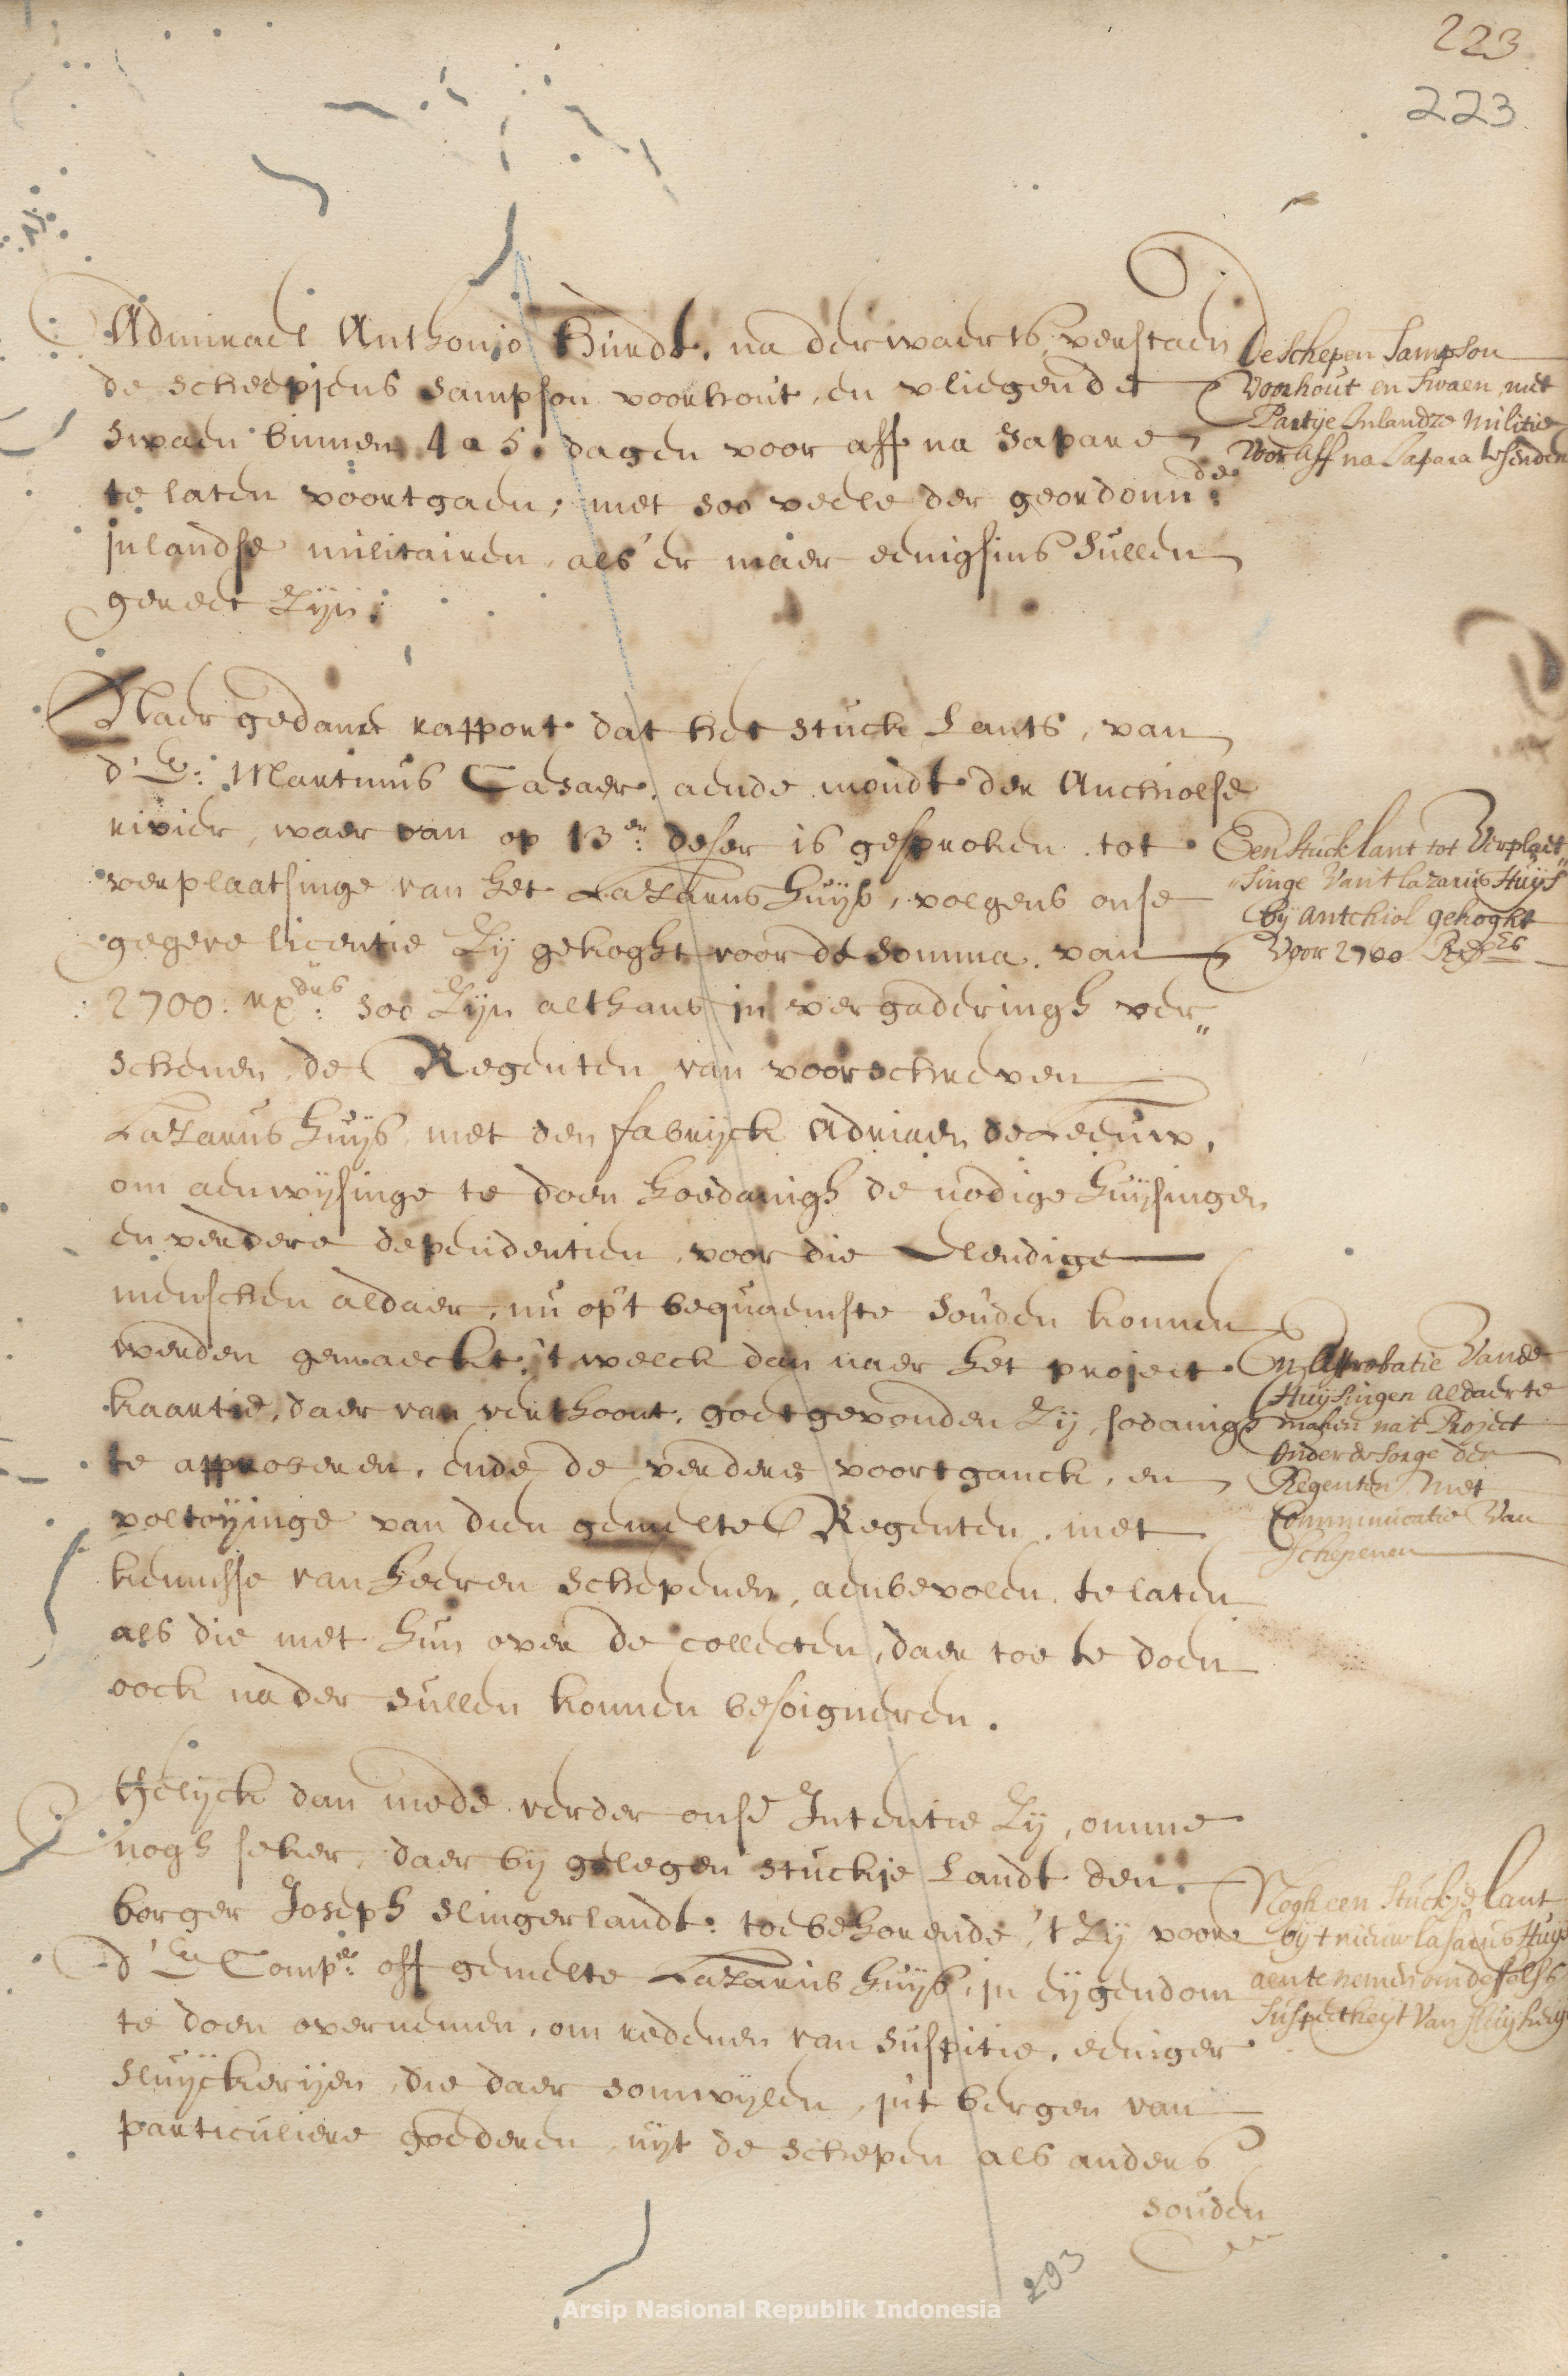 223
223
Admirael Anthonio Hurdt, na derwaerts, verstaen
de scheepjens Sampson voorhout, en vliegende
swaen binnen 4 a 5 dagen voor aff na Japare
te laten voortgaen; met soo veele der geordonn:de
inlandse militairen, als'er maer eenigsins sullen
gereet zijn;
De schepen Sampson
Voorhout en Swaen, met
Partije Inlandze militie
Voor aff na Japara te senden
Naer gedane rapport dat het stuck Lants, van
d'E: Martinus Casaer, aende mondt der Anchiolse
rivier, waer van op 13:en deser is gesproken tot
verplaatsinge van het Lazarus huijs, volgens onse
gegeve licentie zij gekoght voor de somma van
2700: rx:drs soo zijn althans in vergaderingh ver„
schenen de Regenten van voorschreven
Lazarus huijs, met den fabrijck Adriaen de Leeuw,
om aenwijsinge te doen hoedanigh de nodige huijsingen
en verdere dependentien, voor die Elendige
menschen aldaer, nu op't bequaemste souden konnen
werden gemaeckt, 't welck dan naer het project
kaartie, daer van verthoont, goet gevonden zij, sodanigh
te approberen, ende de verdere voortganck, en
voltoijinge van dien gemelte Regenten, met
kennisse van heeren schepenen, aenbevolen te laten
als die met hun over de collecten, daer toe te doen
oock nader sullen konnen besoigneren.
Een stuck lant tot verplaet„
„singe van't lazarus Huijs
bij antchiol gekoght
voor 2700 Rx:drs
En Approbatie vande
Huijsingen aldaer te
maken na't Project
onder de sorge der
Regenten met
Communicatie van
Schepenen
Gelijck dan mede verder onse Intentie zij, omme
nogh seker, daer bij gelegen stuckje Landt den
borger Joseph Slingerlandt: toebehorende, 't zij voor
d'E Comp:e off gemelte Lazarus huijs, in eijgendom
te doen overnemen, om redenen van suspitie, eeniger
sluijckerijen, die daer somwijlen, in't bergen van
particuliere goederen, uijt de schepen als anders
souden
Nogh een stuckje lant
bij 't nieuw lasarus Huijs
aen te nemen om desselfs
suspectheijt van sluijkerij
293
Arsip Nasional Republik Indonesia